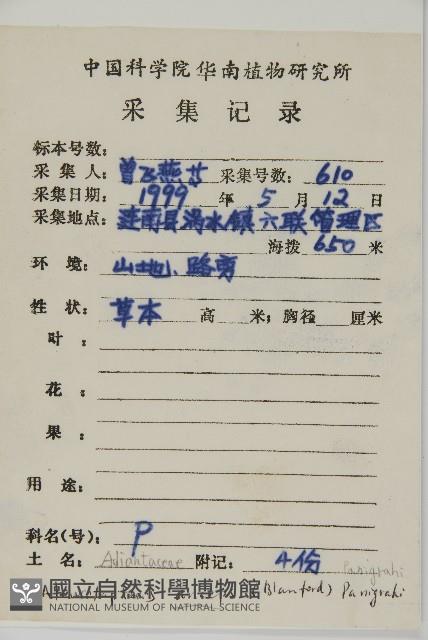 中国科学院华南植物研究所
采集记录
标本号数：
采集人：曾飞燕等 采集号数：610
采集日期：1999 年 5 月 12 日
采集地点：连南县涡水镇六联管理区
海拨 650 米
环境：山地、路旁
性状：草本 高 米；胸径 厘米
叶：
花：
果：
用途：
科名(号)：P
土名：Adiantaceae 附记：4份 Panigrahi
(Blanford) Panigrahi
國立自然科學博物館
NATIONAL MUSEUM OF NATURAL SCIENCE